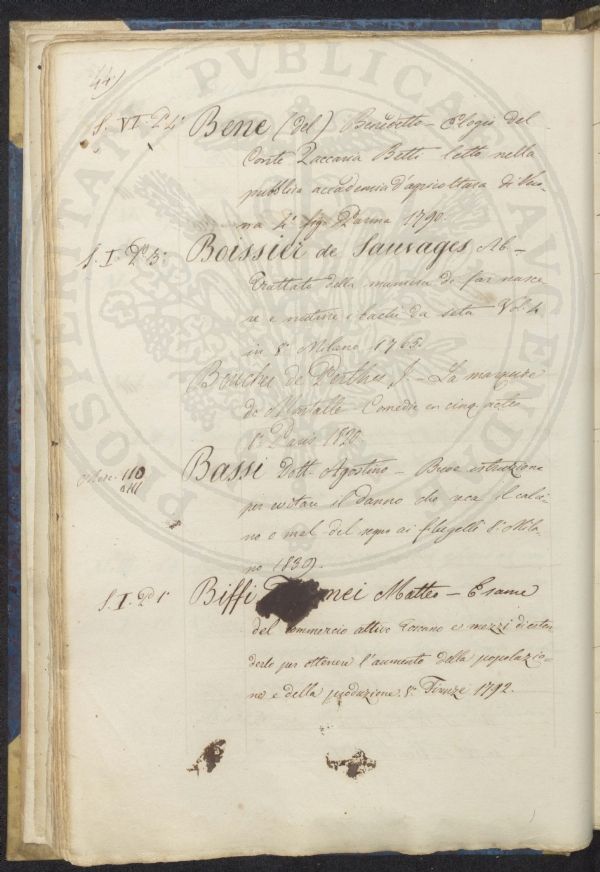 44)
S. VI. P. 4° Bene (Del) Benedetto - Elogio del
Conte Zaccaria Betti letto nella
pubblica accademia d'agricoltura di Vero-
na 4° fig. Parma 1790.
S. I. P. 3° Boissier de Sauvages Ab -
Trattato della maniera di far nasce
re e nutrire i bachi da seta Vol. 4
in 8° Milano 1765.
Boucher de Perthes J. - La marquise
de Montalte - Comedie en cinq actes
8° Paris 1820.
Misc. 110 Bassi Dott. Agostino - Breve istruzione
per evitare il danno che reca il calci-
no o mal del segno ai filugelli 8° Mila
no 1839.
S. I. Pd 1° Biffi Matteo - Esame
del commercio attivo Toscano e mezzi di esten-
derlo per ottenere l'aumento della popolazio-
ne e della produzione 8° Firenze 1792.
PROSPERITATI PVBLICAE AVGENDAE